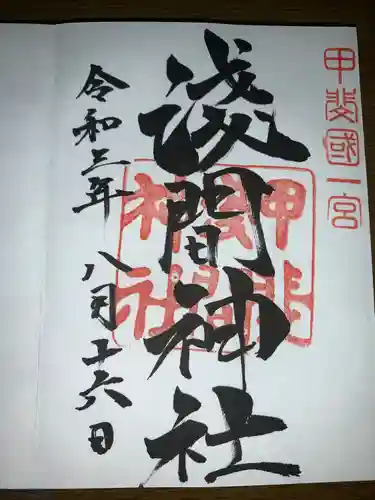 甲斐國一宮
淺間神社
甲斐淺間神社
令和三年八月十六日